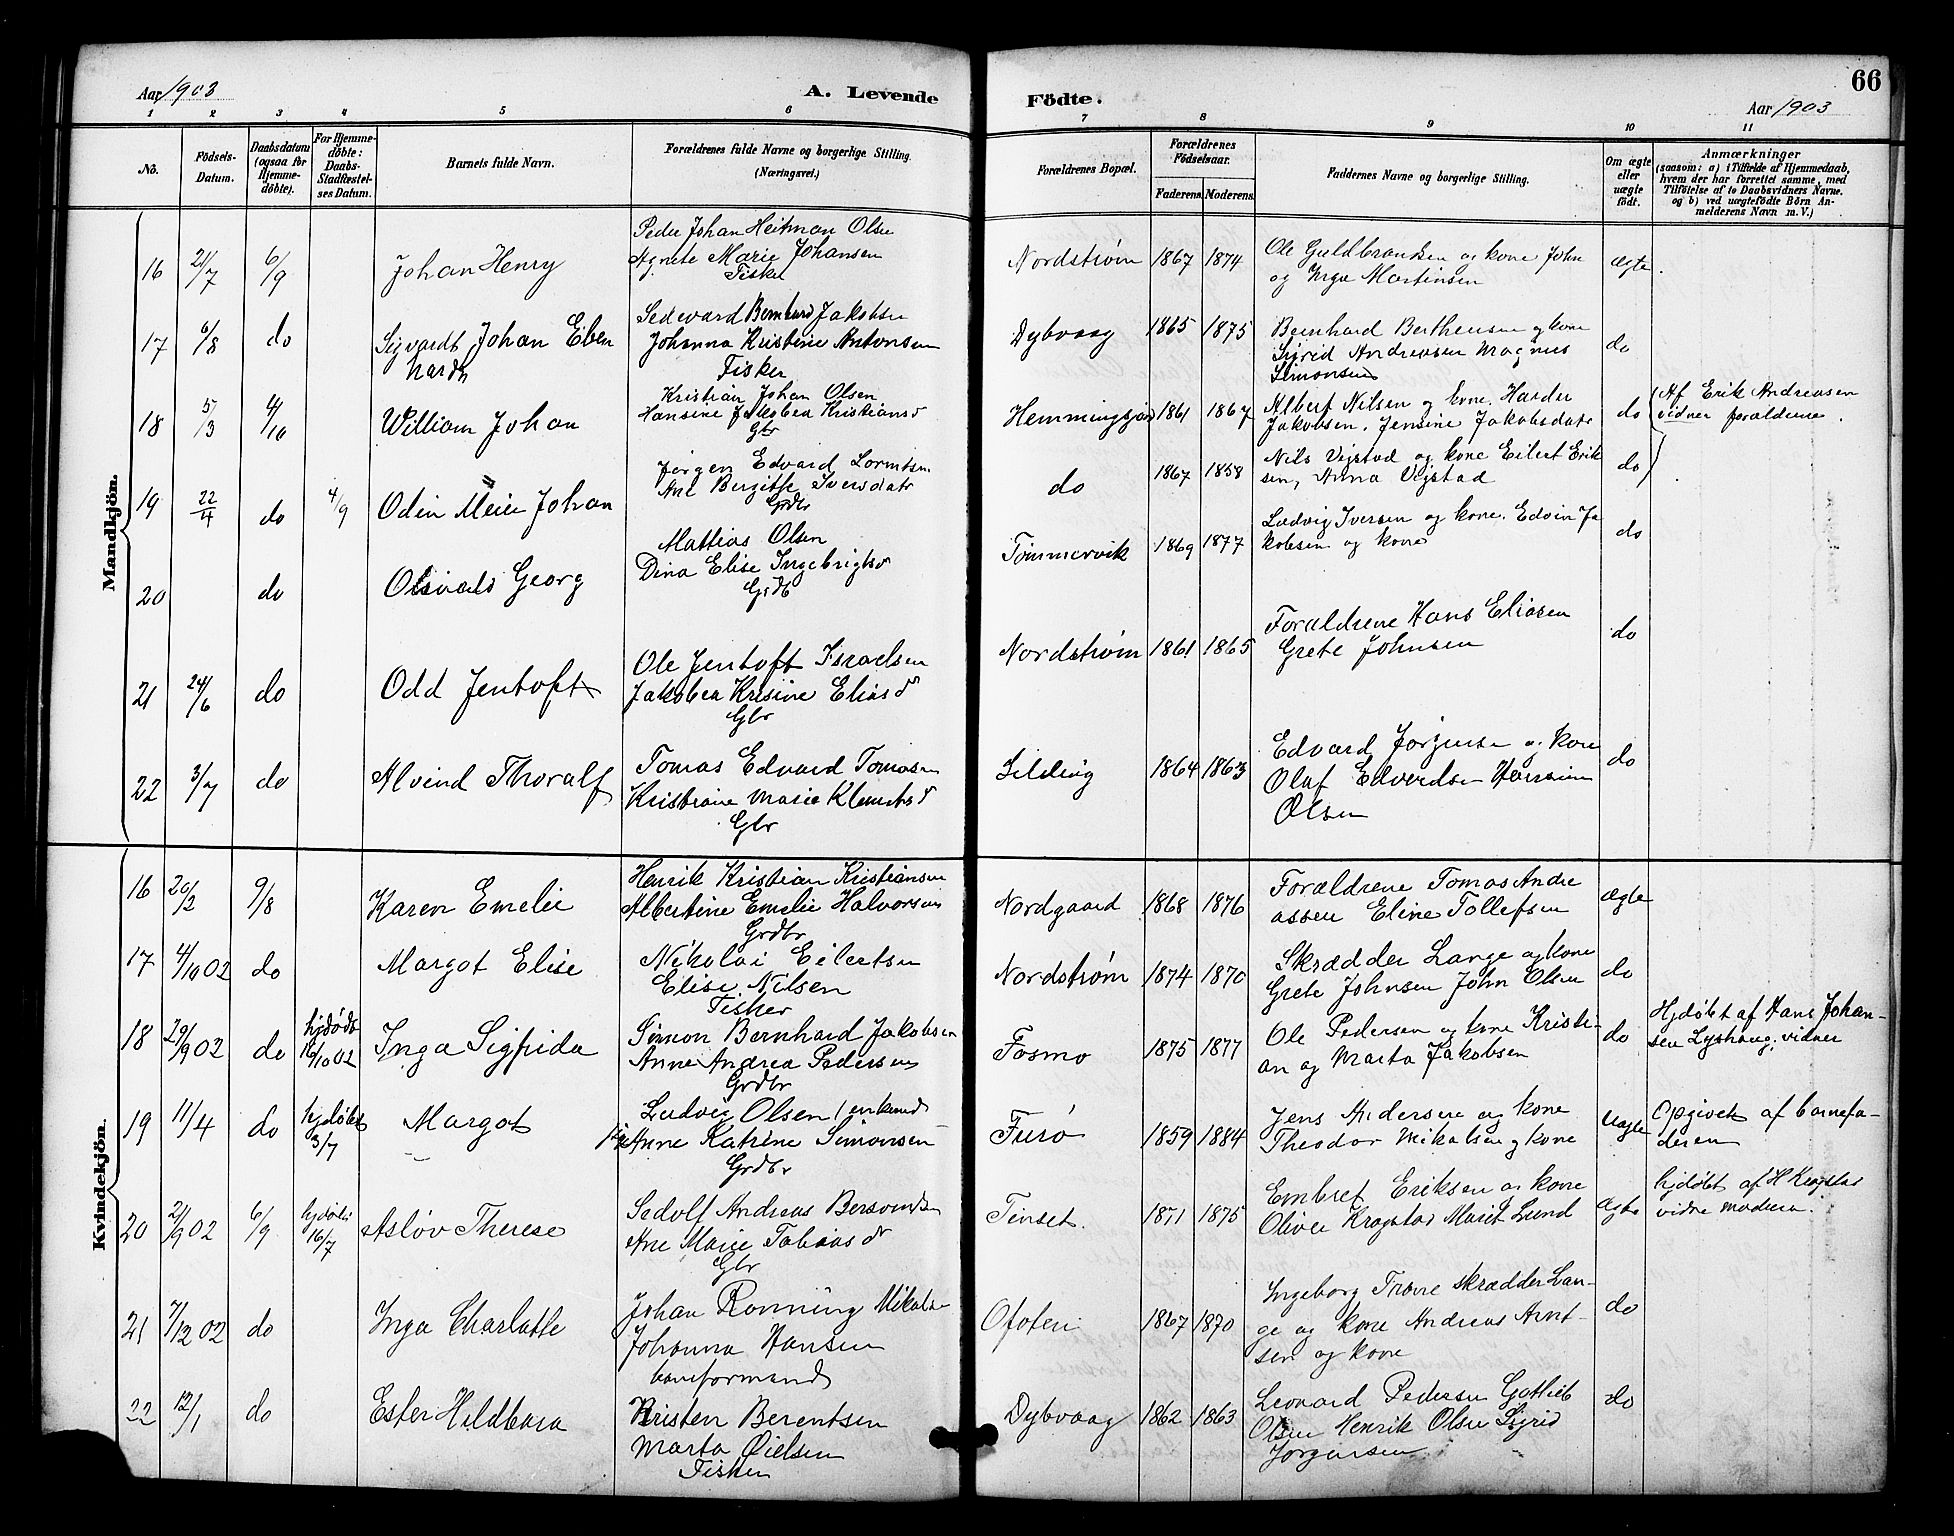 66
Aar 1903
A. Levende
Födte.
Aar 1903
1 2 3 4 5 6 7 8 9 10 11
No.
Födsels-
Datum.
Daabsdatum
(ogsaa for
Hjemme-
döbte).
For Hjemme-
döbte:
Daabs-
Stadfæstel-
ses Datum.
Barnets fulde Navn.
Forældrenes fulde Navne og borgerlige Stilling.
(Næringsvei.)
Forældrenes Bopæl.
Forældrenes
Födselsaar.
Faderens. Moderens.
Faddernes Navne og borgerlige Stilling.
Om ægte
eller
uægte
født.
Anmærkninger
(saasom: a) i Tilfælde af Hjemmedaab,
hvem der har forrettet samme, med
Tilföielse af to Daabsvidners Navne.
og b) ved uægtefödte Börn An-
melderens Navn m. V.)
Mandkjön.
16 21/7 6/9 Johan Henry
Peder Johan Heitman Olsen
Agnete Marie Johansen
Fisker
Nordstrøm 1867 1874
Ole Guldbrandsen og kone John
og Inga Martinsen
ægte
17 6/8 do
Sigvardt Johan Eben
hardt
Sedevard Bernhard Jakobsen
Johanna Kristine Antonsen
Fisker
Dybvaag 1865 1875
Bernhard Berthensen og kone
Sigrid Andreasen Magnus
Simonsen
do
18 5/3 4/10 William Johan
Kristian Johan Olsen
Hansine Jakobea Kristiansd
Gbr
Hemmingsjord 1861 1867
Albert Nilsen og kone. Harder
Jakobsen. Jensine Jakobsdatr
do
Af Erik Andreasen
vidner forældrene.
19 22/4 do 4/9 Odin Meier Johan
Jørgen Edvard Lorentsen
Ane Bergitte Iversdatr
Grdbr
do 1867 1858
Nils Vejstad og kone Eilert Erik
sen, Anna Vejstad
do
20 do Georg
Mattias Olsen
Dina Elise Ingebrigtsd
Grdb
Tømmervik 1869 1877
Ludvig Iversen og kone. Edvin Ja
kobsen og kone
do
21 24/6 do Odd Jentoft
Ole Jentoft Israelsen
Jakobea Krisine Eliasd
Gbr
Nordstrøm 1861 1865
Forældrene Hans Eliasen
Grete Johnsen
do
22 3/7 do Alvind Thoralf
Tomas Edvard Tomasen
Kristiane Marie Klemetsd
Gbr
1864 1863
Edvard Jørgensen og kone
Olaf Edvardsen
Olsen
do
Kvindekjön.
16 20/2 9/8 Karen Emelie
Henrik Kristian Kristiansen
Albertine Emelie Halvorsen
Grdbr
Nordgaard 1868 1876
Forældrene Tomas Andre
assen Eline Tollefsen
ægte
17 4/10 02 do Margot Elise
Nikolai Eilertsen
Elise Nilsen
Fisker
Nordstrøm 1874 1870
Skrædder Lange og kone
Grete Johnsen John Olsen
do
18 29/9 02 do
hjdøbt
16/10 02
Inga Sigfrida
Simon Bernhard Jakobsen
Anne Andrea Pedersen
Grdbr
Fosmo 1875 1877
Ole Pedersen og kone Kristi-
an og Marta Jakobsen
do
Hjdøbt af Hans Johan-
sen Lyshaug, vidner
19 11/4 do
hjdøbt
3/7
Margot
Ludvig Olsen, enkemd
Anne Katrine Simonsen
Grdbr
Furø 1859 1884
Jens Andersen og kone
Theodor Mikalsen og kone
uægte
Opgivet af barnefa-
deren
20 21/9 02 6/9
hjdøbt
16/7
Asløv Therese
Sedolf Andreas
Ane Marie Tobiasd
Gbr
Tinset. 1871 1875
Embret Eriksen og kone
Oliver Krogstad Marit Lund
ægte
hjdøbt af H Krogstad
vidne moderen.
21 7/12 02 do Inga Charlotte
Johan Rønning Mikalsen
Johanna Hansen
baneformand
Ofoten 1867 1870
Ingeborg Trane skrædder Lan-
ge og kone Andreas Arnt-
sen og kone
do
22 12/1 do Ester Hildbara
Kristen Berentsen
Marta
Fisker
Dybvaag 1862 1863
Leonard Pedersen Gotlieb
Olsen Henrik Olsen Sigrid
Jørgensen
do